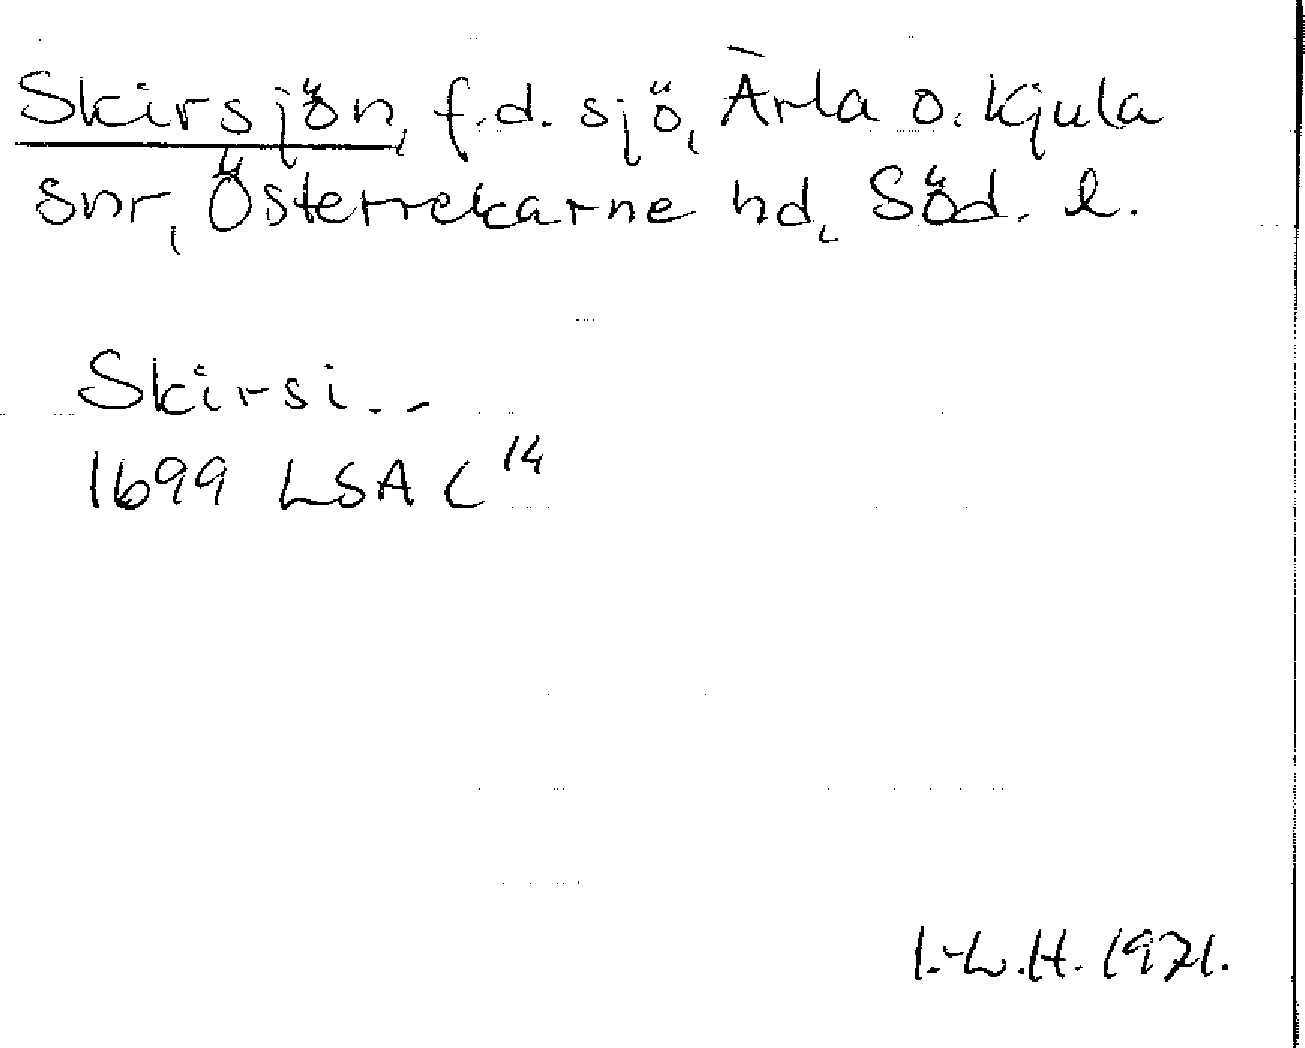 Skirsjön, f.d. sjö, Ärla o. Kjula
snr, Österrekarne hd, Söd. l.
Skirsi. -
1699 LSA C¹⁴
I.-L.H. 1971.